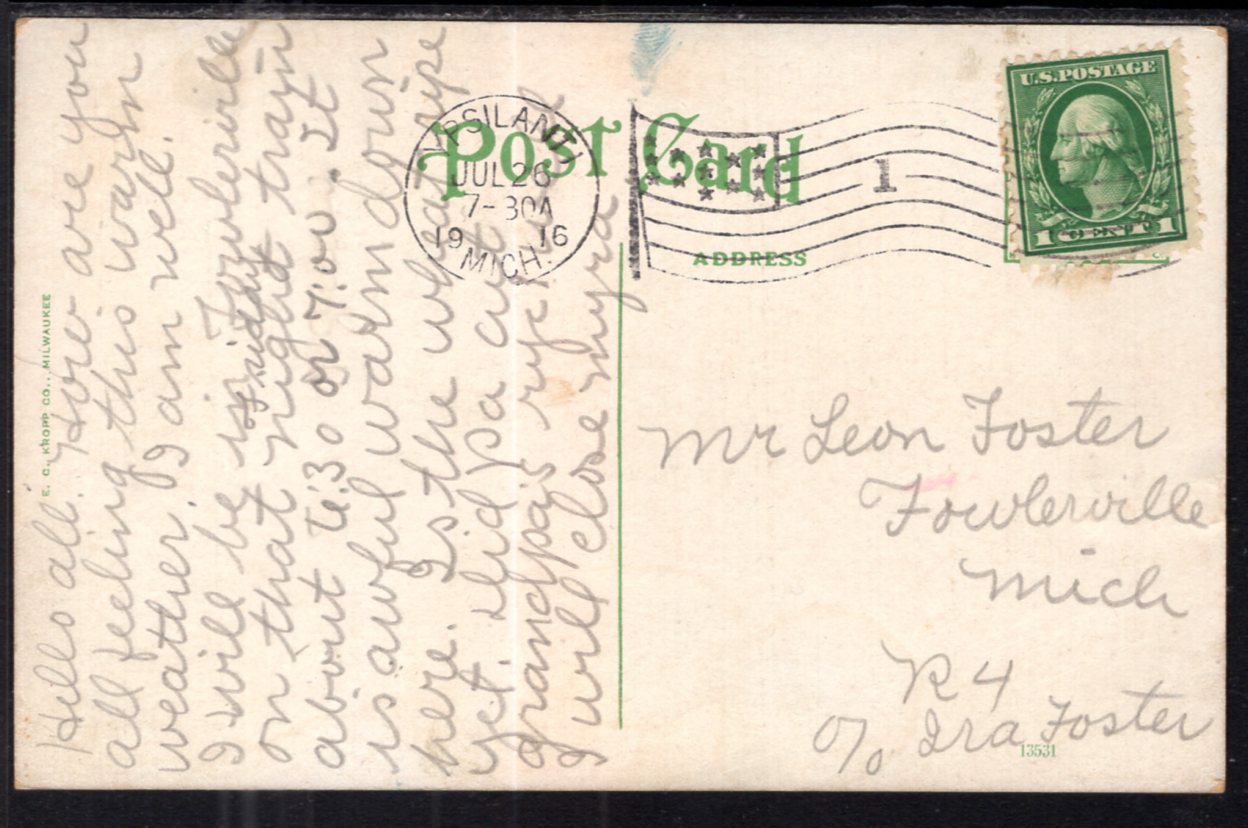 Hello all. How are you
all feeling this warm
weather. I am well.
I will be in Fowlerville
on that night train
Friday
about 6:30 or 7:00. It
is awful warm down
here. Is the wheat ripe
yet. Did Pa cut
grandpa's rye
I will close Myra
Post Card
ADDRESS
YPSILANTI
JUL 26
7-30A
1916
MICH.
1
U.S. POSTAGE
1 CENT 1
Mr Leon Foster
Fowlerville
Mich
R 4
c/o Ira Foster
13531
E. C. KROPP CO., MILWAUKEE